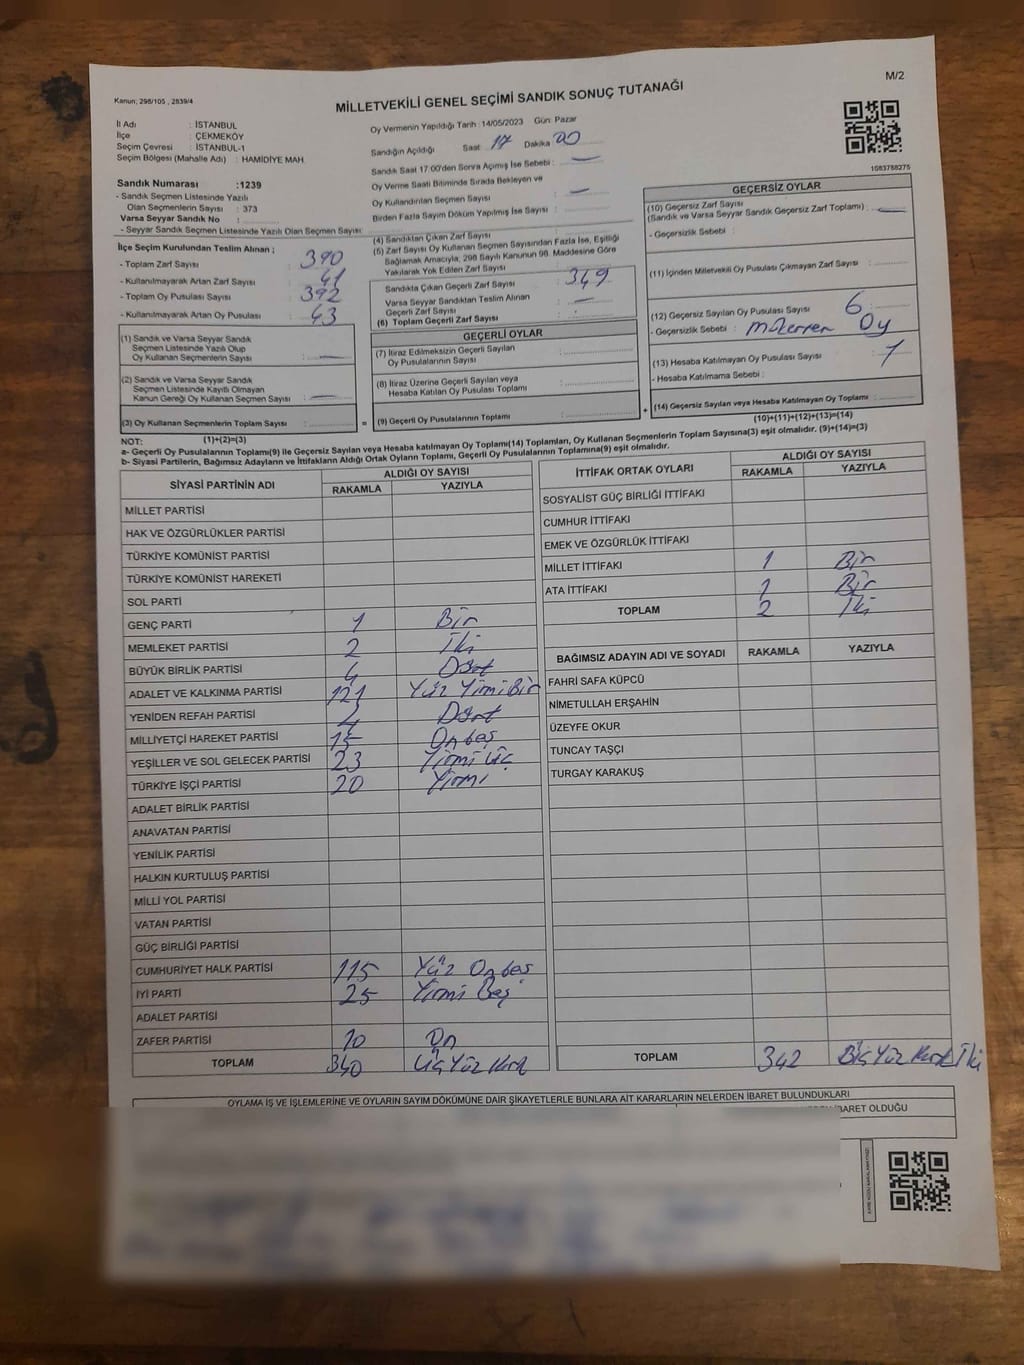 M/2
Kanun; 298/105 , 2839/4
MİLLETVEKİLİ GENEL SEÇİMİ SANDIK SONUÇ TUTANAĞI
İl Adı : İSTANBUL
İlçe : ÇEKMEKÖY
Seçim Çevresi : İSTANBUL-1
Seçim Bölgesi (Mahalle Adı) : HAMİDİYE MAH.
Oy Vermenin Yapıldığı Tarih :14/05/2023 Gün: Pazar
Sandığın Açıldığı Saat 17 Dakika 00
Sandık Saat 17:00'den Sonra Açılmış İse Sebebi : —
Oy Verme Saati Bitiminde Sırada Bekleyen ve
Oy Kullandırılan Seçmen Sayısı : —
Birden Fazla Sayım Döküm Yapılmış İse Sayısı :
1083788275
Sandık Numarası :1239
- Sandık Seçmen Listesinde Yazılı
Olan Seçmenlerin Sayısı : 373
Varsa Seyyar Sandık No :
- Seyyar Sandık Seçmen Listesinde Yazılı Olan Seçmen Sayısı:
İlçe Seçim Kurulundan Teslim Alınan ;
- Toplam Zarf Sayısı : 390
- Kullanılmayarak Artan Zarf Sayısı : 41
- Toplam Oy Pusulası Sayısı : 392
- Kullanılmayarak Artan Oy Pusulası : 43
(1) Sandık ve Varsa Seyyar Sandık
Seçmen Listesinde Yazılı Olup
Oy Kullanan Seçmenlerin Sayısı : —
(2) Sandık ve Varsa Seyyar Sandık
Seçmen Listesinde Kayıtlı Olmayan
Kanun Gereği Oy Kullanan Seçmen Sayısı : —
(3) Oy Kullanan Seçmenlerin Toplam Sayısı :
(1)+(2)=(3)
(4) Sandıktan Çıkan Zarf Sayısı :
(5) Zarf Sayısı Oy Kullanan Seçmen Sayısından Fazla İse, Eşitliği
Sağlamak Amacıyla, 298 Sayılı Kanunun 98. Maddesine Göre
Yakılarak Yok Edilen Zarf Sayısı :
Sandıkta Çıkan Geçerli Zarf Sayısı : 349
Varsa Seyyar Sandıktan Teslim Alınan
Geçerli Zarf Sayısı : —
(6) Toplam Geçerli Zarf Sayısı :
GEÇERLİ OYLAR
(7) İtiraz Edilmeksizin Geçerli Sayılan
Oy Pusulalarının Sayısı :
(8) İtiraz Üzerine Geçerli Sayılan veya
Hesaba Katılan Oy Pusulası Toplamı :
= (9) Geçerli Oy Pusulalarının Toplamı :
GEÇERSİZ OYLAR
(10) Geçersiz Zarf Sayısı
(Sandık ve Varsa Seyyar Sandık Geçersiz Zarf Toplamı) : —
- Geçersizlik Sebebi :
(11) İçinden Milletvekili Oy Pusulası Çıkmayan Zarf Sayısı :
(12) Geçersiz Sayılan Oy Pusulası Sayısı : 6
- Geçersizlik Sebebi : Oy
(13) Hesaba Katılmayan Oy Pusulası Sayısı : 1
- Hesaba Katılmama Sebebi :
+ (14) Geçersiz Sayılan veya Hesaba Katılmayan Oy Toplamı :
(10)+(11)+(12)+(13)=(14)
NOT:
a- Geçerli Oy Pusulalarının Toplamı(9) ile Geçersiz Sayılan veya Hesaba katılmayan Oy Toplamı(14) Toplamları, Oy Kullanan Seçmenlerin Toplam Sayısına(3) eşit olmalıdır. (9)+(14)=(3)
b- Siyasi Partilerin, Bağımsız Adayların ve İttifakların Aldığı Ortak Oyların Toplamı, Geçerli Oy Pusulalarının Toplamına(9) eşit olmalıdır.
SİYASİ PARTİNİN ADI ALDIĞI OY SAYISI
RAKAMLA YAZIYLA
MİLLET PARTİSİ
HAK VE ÖZGÜRLÜKLER PARTİSİ
TÜRKİYE KOMÜNİST PARTİSİ
TÜRKİYE KOMÜNİST HAREKETİ
SOL PARTİ
GENÇ PARTİ 1 Bir
MEMLEKET PARTİSİ 2 İki
BÜYÜK BİRLİK PARTİSİ 4 Dört
ADALET VE KALKINMA PARTİSİ 121 Yüz Yirmi Bir
YENİDEN REFAH PARTİSİ 4 Dört
MİLLİYETÇİ HAREKET PARTİSİ 15 Onbeş
YEŞİLLER VE SOL GELECEK PARTİSİ 23 Yirmi Üç
TÜRKİYE İŞÇİ PARTİSİ 20 Yirmi
ADALET BİRLİK PARTİSİ
ANAVATAN PARTİSİ
YENİLİK PARTİSİ
HALKIN KURTULUŞ PARTİSİ
MİLLİ YOL PARTİSİ
VATAN PARTİSİ
GÜÇ BİRLİĞİ PARTİSİ
CUMHURİYET HALK PARTİSİ 115 Yüz Onbeş
İYİ PARTİ 25 Yirmi Beş
ADALET PARTİSİ
ZAFER PARTİSİ 10 On
TOPLAM 340 ÜçYüz Kırk
İTTİFAK ORTAK OYLARI ALDIĞI OY SAYISI
RAKAMLA YAZIYLA
SOSYALİST GÜÇ BİRLİĞİ İTTİFAKI
CUMHUR İTTİFAKI
EMEK VE ÖZGÜRLÜK İTTİFAKI
MİLLET İTTİFAKI 1 Bir
ATA İTTİFAKI 1 Bir
TOPLAM 2 İki
BAĞIMSIZ ADAYIN ADI VE SOYADI RAKAMLA YAZIYLA
FAHRİ SAFA KÜPCÜ
NİMETULLAH ERŞAHİN
ÜZEYFE OKUR
TUNCAY TAŞÇI
TURGAY KARAKUŞ
TOPLAM 342 Yüz Kırk İki
OYLAMA İŞ VE İŞLEMLERİNE VE OYLARIN SAYIM DÖKÜMÜNE DAİR ŞİKAYETLERLE BUNLARA AİT KARARLARIN NELERDEN İBARET BULUNDUKLARI
İBARET OLDUĞU